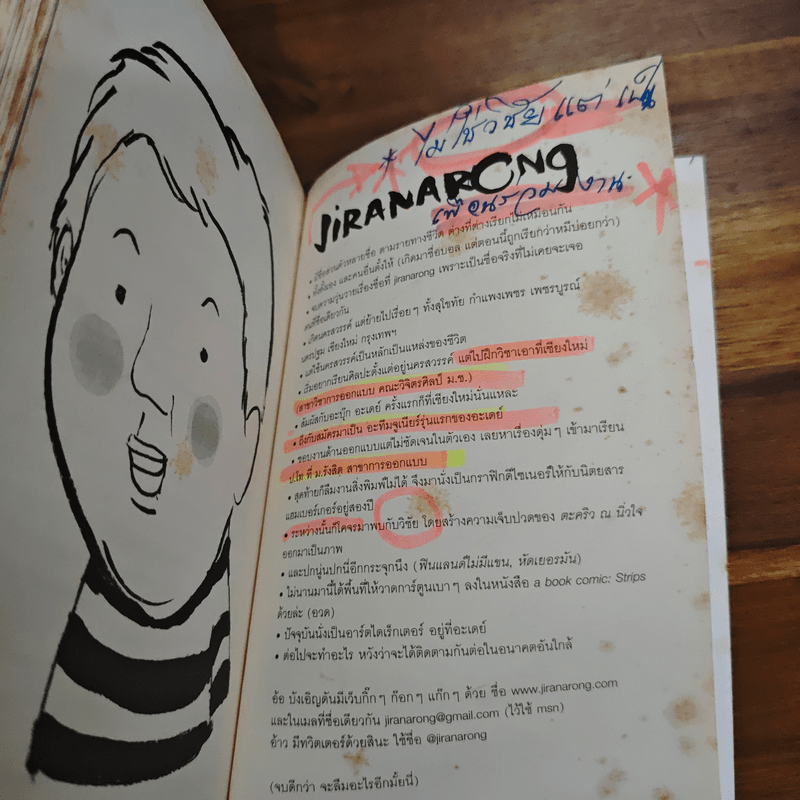 * ไม่ใช่วิชัย แต่ เป็น
JiRANARONG
เพื่อนร่วมงาน
• มีชื่อส่วนตัวหลายชื่อ ตามรายทางชีวิต ต่างที่ต่างเรียกไม่เหมือนกัน
ทั้งตั้งเอง และคนอื่นตั้งให้ (เกิดมาชื่อบอล แต่ตอนนี้ถูกเรียกว่าหมีบ่อยกว่า)
• จบความวุ่นวายเรื่องชื่อที่ jiranarong เพราะเป็นชื่อจริงที่ไม่เคยจะเจอ
คนมีชื่อเดียวกัน
• เกิดนครสวรรค์ แต่ย้ายไปเรื่อยๆ ทั้งสุโขทัย กำแพงเพชร เพชรบูรณ์
นครปฐม เชียงใหม่ กรุงเทพฯ
• แต่ใช้นครสวรรค์เป็นหลักเป็นแหล่งของชีวิต
• เริ่มอยากเรียนศิลปะตั้งแต่อยู่นครสวรรค์ แต่ไปฝึกวิชาเอาที่เชียงใหม่
(สาขาวิชาการออกแบบ คณะวิจิตรศิลป์ ม.ช.)
• สัมผัสกับอะบุ๊ก อะเดย์ ครั้งแรกก็ที่เชียงใหม่นั่นแหละ
• ถึงกับสมัครมาเป็น อะทีมจูเนียร์รุ่นแรกของอะเดย์
• ชอบงานด้านออกแบบแต่ไม่ชัดเจนในตัวเอง เลยหาเรื่องดุ่มๆ เข้ามาเรียน
ป.โท ที่ ม.รังสิต สาขาการออกแบบ
• สุดท้ายก็ลืมงานสิ่งพิมพ์ไม่ได้ จึงมานั่งเป็นกราฟิกดีไซเนอร์ให้กับนิตยสาร
แฮมเบอร์เกอร์อยู่สองปี
• ระหว่างนั้นก็โคจรมาพบกับวิชัย โดยสร้างความเจ็บปวดของ ตะคริว ณ นิ้วใจ
ออกมาเป็นภาพ
• และปกนู่นปกนี่อีกกระจุกนึง (ฟินแลนด์ไม่มีแขน, หัดเยอรมัน)
• ไม่นานมานี้ได้พื้นที่ให้วาดการ์ตูนเบาๆ ลงในหนังสือ a book comic: Strips
ด้วยล่ะ (อวด)
• ปัจจุบันนั่งเป็นอาร์ตไดเร็กเตอร์ อยู่ที่อะเดย์
• ต่อไปจะทำอะไร หวังว่าจะได้ติดตามกันต่อในอนาคตอันใกล้
อ้อ บังเอิญดันมีเว็บกิ๊กๆ ก๊อกๆ แก๊กๆ ด้วย ชื่อ www.jiranarong.com
และในเมลที่ชื่อเดียวกัน jiranarong@gmail.com (ไว้ใช้ msn)
อ้าว มีทวิตเตอร์ด้วยสินะ ใช้ชื่อ @jiranarong
(จบดีกว่า จะลืมอะไรอีกมั้ยนี่)